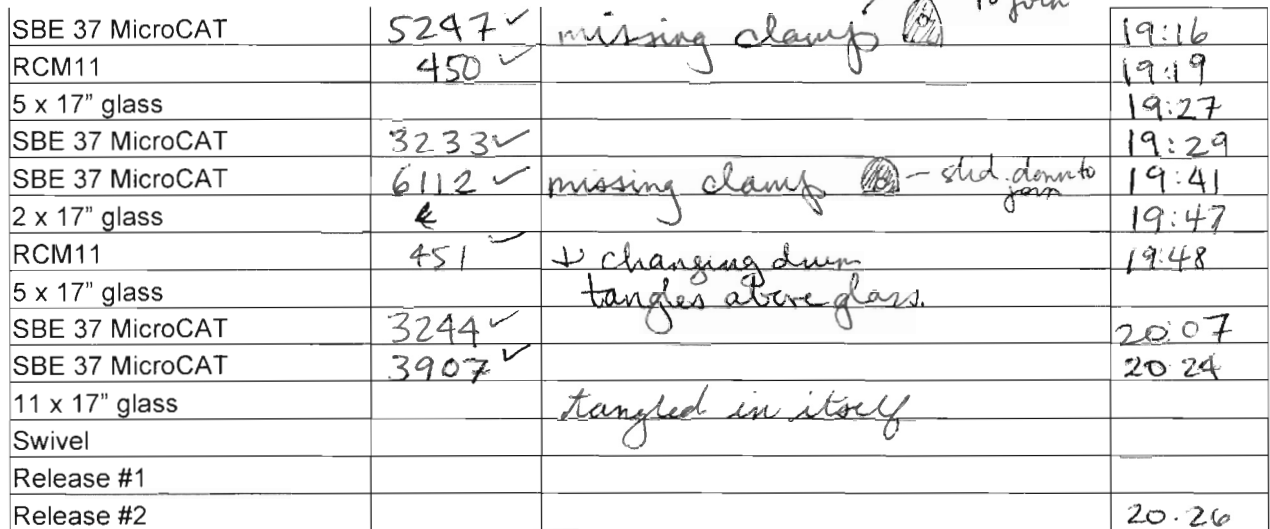 to join
SBE 37 MicroCAT 5247 ✓ missing clamp 19:16
RCM11 450 ✓ 19:19
5 x 17" glass 19:27
SBE 37 MicroCAT 3233 ✓ 19:29
SBE 37 MicroCAT 6112 ✓ missing clamp – slid down to join 19:41
2 x 17" glass 19:47
RCM11 451 ✓ ↓ changing drum 19:48
5 x 17" glass tangles above glass.
SBE 37 MicroCAT 3244 ✓ 20:07
SBE 37 MicroCAT 3907 ✓ 20 24
11 x 17" glass tangled in itself
Swivel
Release #1
Release #2 20.26